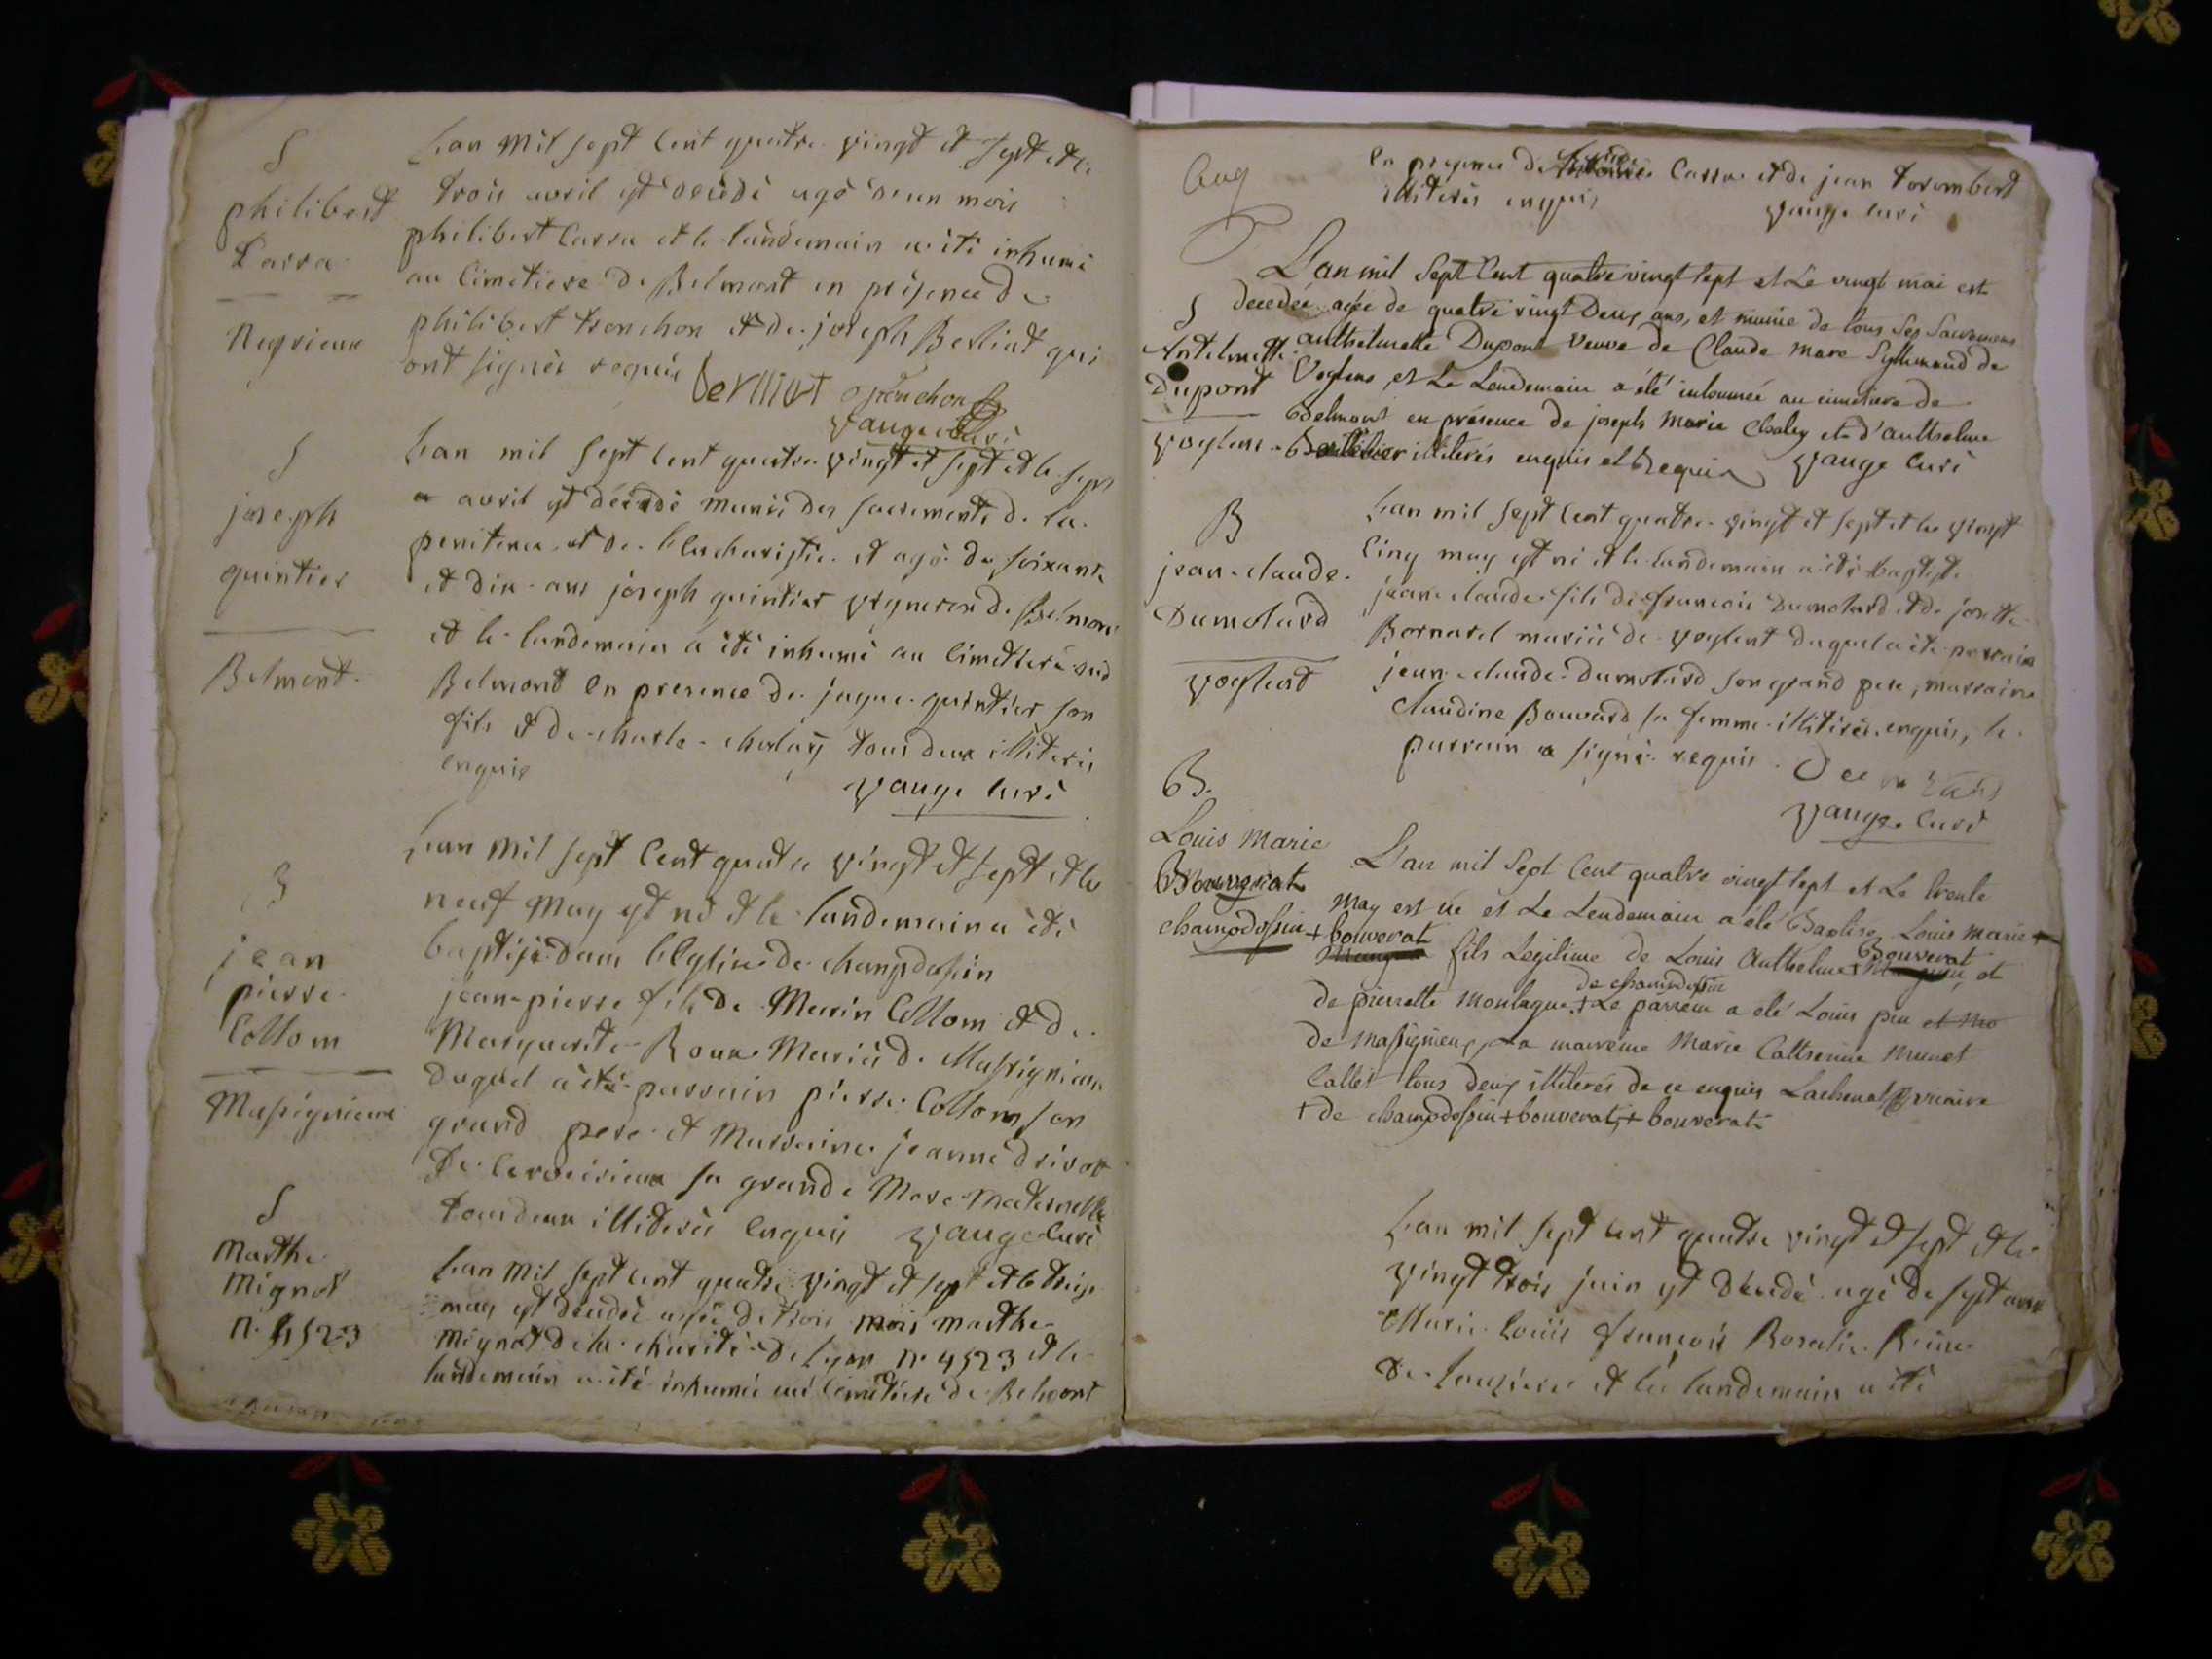 S
philibert
Carra
Negrieux
Lan mil sept cent quatre vingt et sept et le
trois avril est décédé agé d'eun mois
philibert Carra et le landemain a été inhumé
au cimetiere de Belmont en présence de
philibert tronchon et de joseph Berliat qui
ont signés requis
Berlliat Tronchon
vange curé
S
joseph
quintier
Belmont
Lan mil sept cent quatre vingt et sept et le sept
avril est décédé muni des sacrements de la
penitence et de lEucharistie et agé de soixante
et dix ans joseph quintier vigneron de Belmont
et le landemain a été inhumé au cimetiere dud
Belmont en presence de jaque quintier son
fils et de charle chaley tous deux illiterés
enquis
vange curé
B
jean
pierre
Collom
Massignieux
Lan mil sept cent quatre vingt et sept et le
neuf may est né et le landemain a été
baptisé dans lEglise de champdossin
jean-pierre fils de Marin Collom et de
Marguerite Roux Mariés de Massignieux
duquel a été parrain pierre Collom son
grand pere et Marraine jeanne drivot
de Cerveirieux sa grande Mere Maternelle
tous deux illiterés enquis vange curé
S
Marthe
Mignot
n. 4523
Lan mil sept cent quatre vingt et sept et le treize
may est décedée agée de trois mois marthe
Mignot de la charité de Lyon n. 4523 et le
landemain a été inhumée au cimetiere de Belmont
Aug
en presence de Carra et de jean torombert
illiterés enquis
vange curé
S
Antelmette
Dupont
voglens
L'an mil sept cent quatre vingt sept et Le vingt mai est
decedée agée de quatre vingt deux ans, et munie de tous ses sacremens
anthelmette Dupont veuve de Claude Marc de
Voglens, et Le Lendemain a été inhumée au cimetiere de
Belmont en présence de joseph Marie Chaley et d'anthelme
illiterés enquis et Requis vange curé
B
jean-claude
Dumolard
voglent
Lan mil sept cent quatre vingt et sept et le vingt
cinq may est né et le landemain a été baptisé
jean claude fils de francois Dumolard et de josette
Bornarel mariés de voglent duquel a été parrain
jean-claude Dumolard son grand pere, marraine
Claudine Bouvard sa femme illitirés enquis, le
parrain a signé requis
vange curé
B.
Louis Marie
Bouverat
champdossin
L'an mil Sept Cent quatre vingt sept et Le trente
May est né et Le Lendemain a été Baptisé Louis marie +
+ bouverat fils Legitime de Louis Anthelme + Bouverat et
de champdossin
de pierrette Montagne + Le parrein a été Louis et Mo
de Massigneux, La marreine Marie Catherine Munet
Callet tous deux illiterés de ce enquis Lachenal vicaire
+ de champdossin + bouverat, + bouverat
Lan mil sept cent quatre vingt et sept et le
vingt trois juin est décédé agé de sept ans
Marie Louis françois Rosalie Reine
de et le landemain a été